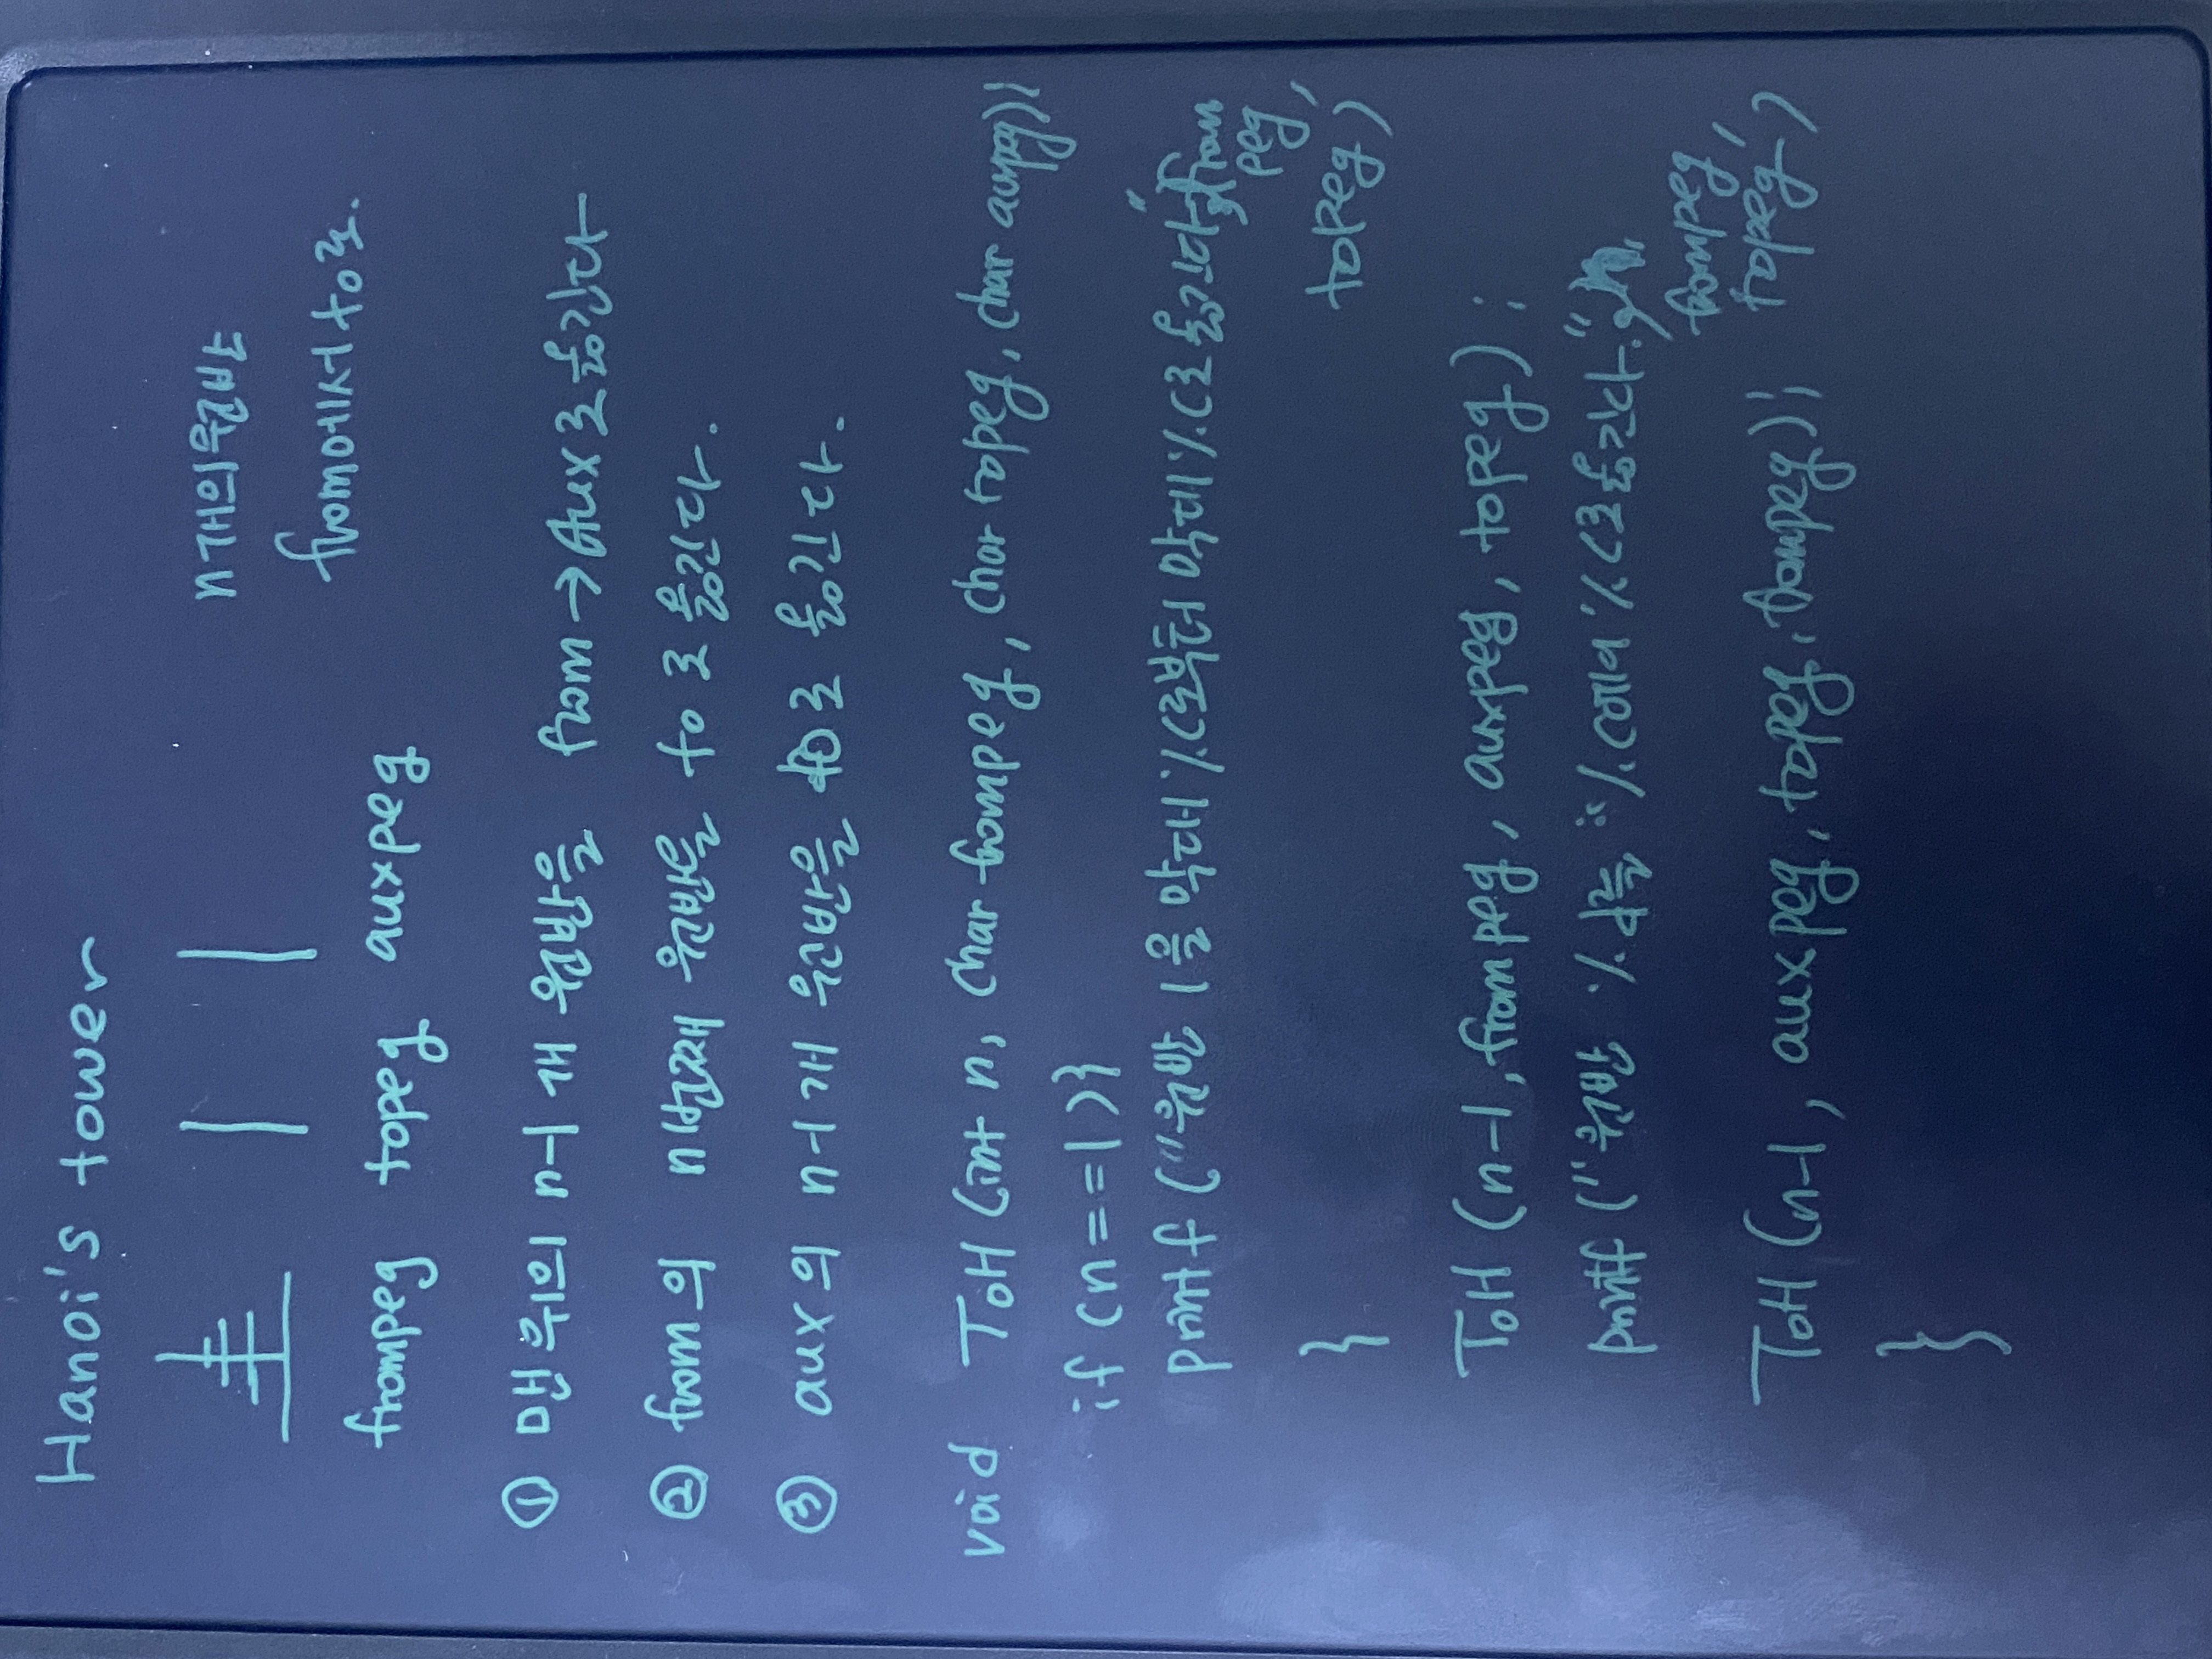 Hanoi's tower
n개의 원반
from에서 to로.
frompeg topeg auxpeg
① 맨 위의 n-1개 원반을 from → Aux로 옮긴다
② from의 n번째 원반을 to로 옮긴다.
③ aux의 n-1개 원반을 to로 옮긴다.
void ToH (int n, char frompeg, char topeg, char auxpeg)}
if (n==1)}
printf ("원반 1을 막대 %c로부터 막대 %c로 옮긴다", from
peg,
topeg)
}
ToH (n-1, frompeg, auxpeg, topeg);
printf ("원반 %d를 %c에서 %c로 옮긴다.", n,
frompeg,
topeg)
ToH (n-1, auxpeg, topeg, frompeg);
}